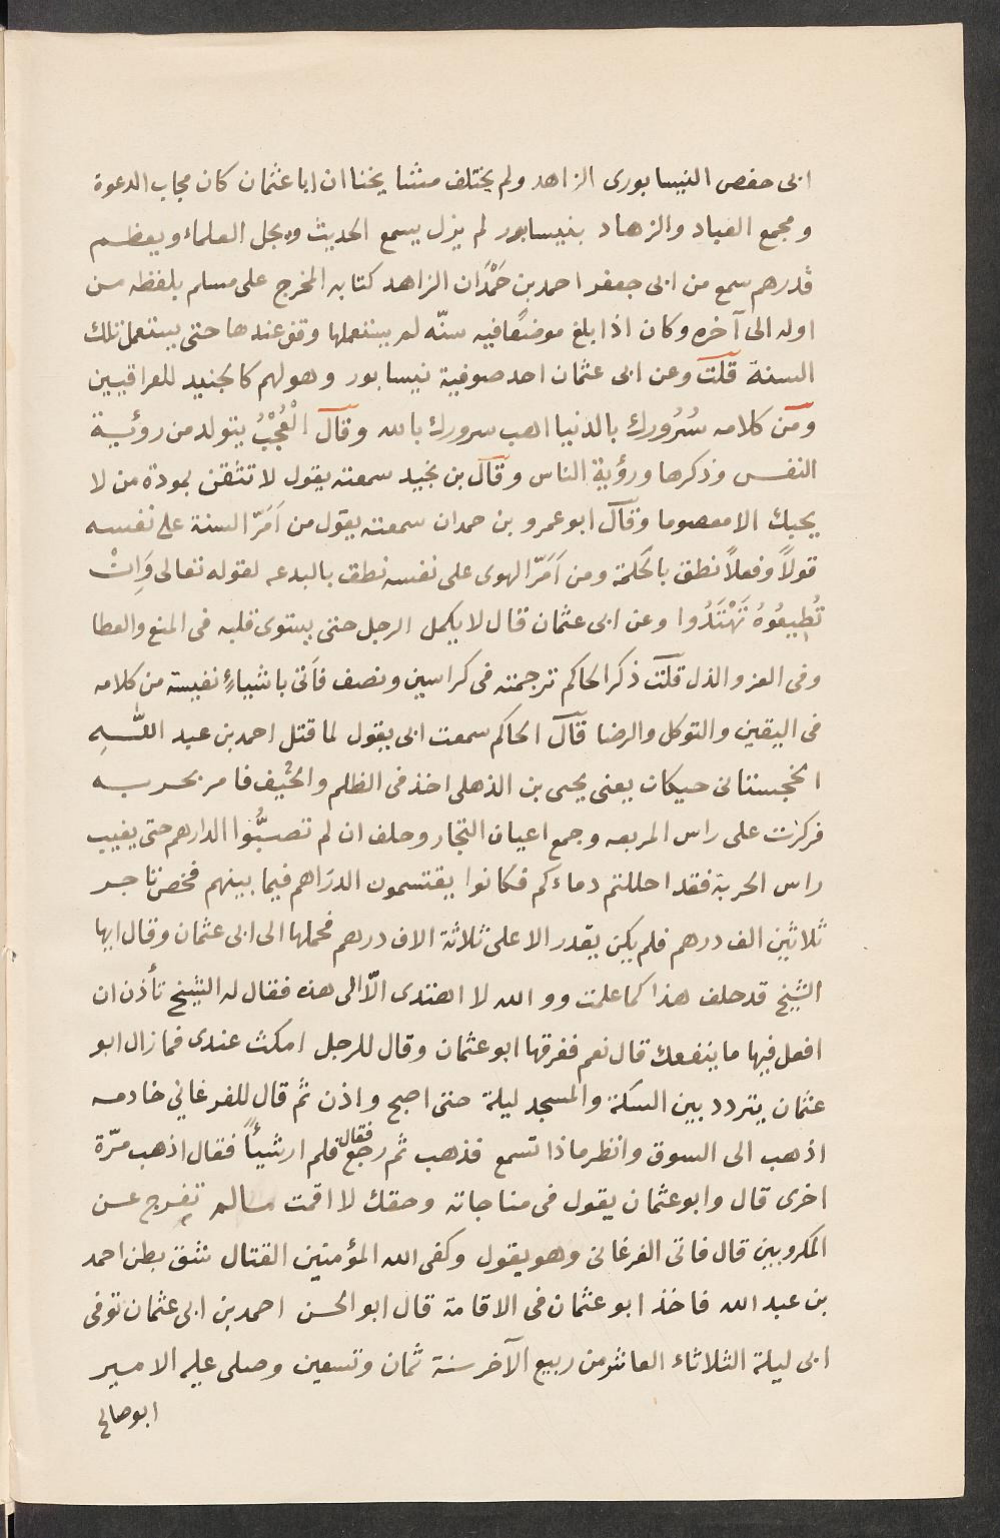 ابى حفص النيسابورى الزاهد ولم يختلف مشايخنا ان ابا عثمان كان مجاب الدعوة
ومجمع العباد والزهاد بنيسابور لم يزل يسمع الحديث ويجل العلماء ويعظم
قدرهم سمع من ابى جعفر احمد بن حَمْدَان الزاهد كتابه المخرج على مسلم بلفظه من
اوله الى آخره وكان اذا بلغ موضعًا فيه سنّه لم يستعملها وقف عندها حتى يستعمل تلك
السنة قلت وعن ابى عثمان احد صوفية نيسابور وهو لهم كالجنيد للعراقيين
ومن كلامه سُرُورك بالدنيا اذهب سرورك بالله وقال الْعُجْبُ يتولد من رؤية
النفس وذكرها ورؤية الناس وقال بن نجيد سمعته يقول لا تثقن بمودة من لا
يحبك الا معصوما وقال ابو عمرو بن حمدان سمعته يقول من اَمَرّ السنة على نفسه
قولاً وفعلاً نطق بالحكمة ومن اَمَرّ الهوى على نفسه نطق بالبدعه لقوله تعالى وَاِنْ
تُطِيعُوهُ تَهْتَدُوا وعن ابى عثمان قال لا يكمل الرجل حتى يستوى قلبه فى المنع والعطا
وفى العز والذل قلت ذكر الحاكم ترجمته فى كراسين ونصف فَاَتى باشياءٍ نفيسة من كلامه
فى اليقين والتوكل والرضا قال الحاكم سمعت ابى يقول لما قتل احمد بن عبد اللّٰهِ
الخجستانى حيكان يعنى يحيى بن الذهلى اخذ فى الظلم والحيف فامر بحربه
فركزت على راس المربعه وجمع اعيان التجار وحلف ان لم تصبُّوا الدراهم حتى يغيب
راس الحربة فقد احللتم دماءكم فكانوا يقتسمون الدرَاهم فيما بينهم فخص تاجر
ثلاثين الف درهم فلم يكن يقدر الا على ثلاثة الاف درهم فحملها الى ابى عثمان وقال ايها
الشيخ قد حلف هذا كما علمت ووالله لا اهتدى الّا الى هذه فقال له الشيخ تأذن ان
افعل فيها ما ينفعك قال نعم ففرقها ابو عثمان وقال للرجل امكث عندى فما زال ابو
عثمان يتردد بين السكة والمسجد ليلة حتى اصبح واذن ثم قال للفرغاني خادمه
اذهب الى السوق وانظر ماذا تسمع فذهب ثم رجع فقال فلم ار شيئًا فقال اذهب مرّة
اخرى قال وابو عثمان يقول فى مناجاته وحقك لا اقمت مالم تفرج عن
المكروبين قال فاتى الفرغانى وهو يقول وكفى الله المؤمنين القتال شق بطن احمد
بن عبد الله فاخذ ابو عثمان فى الاقامة قال ابو الحسن احمد بن ابى عثمان توفى
ابى ليلة الثلاثاء العاشر من ربيع الآخر سنة ثمان وتسعين وصلى عليه الامير
ابو صالح